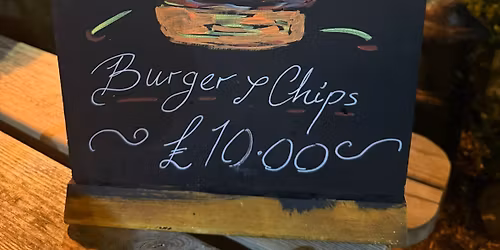 Burger & Chips
£10.00